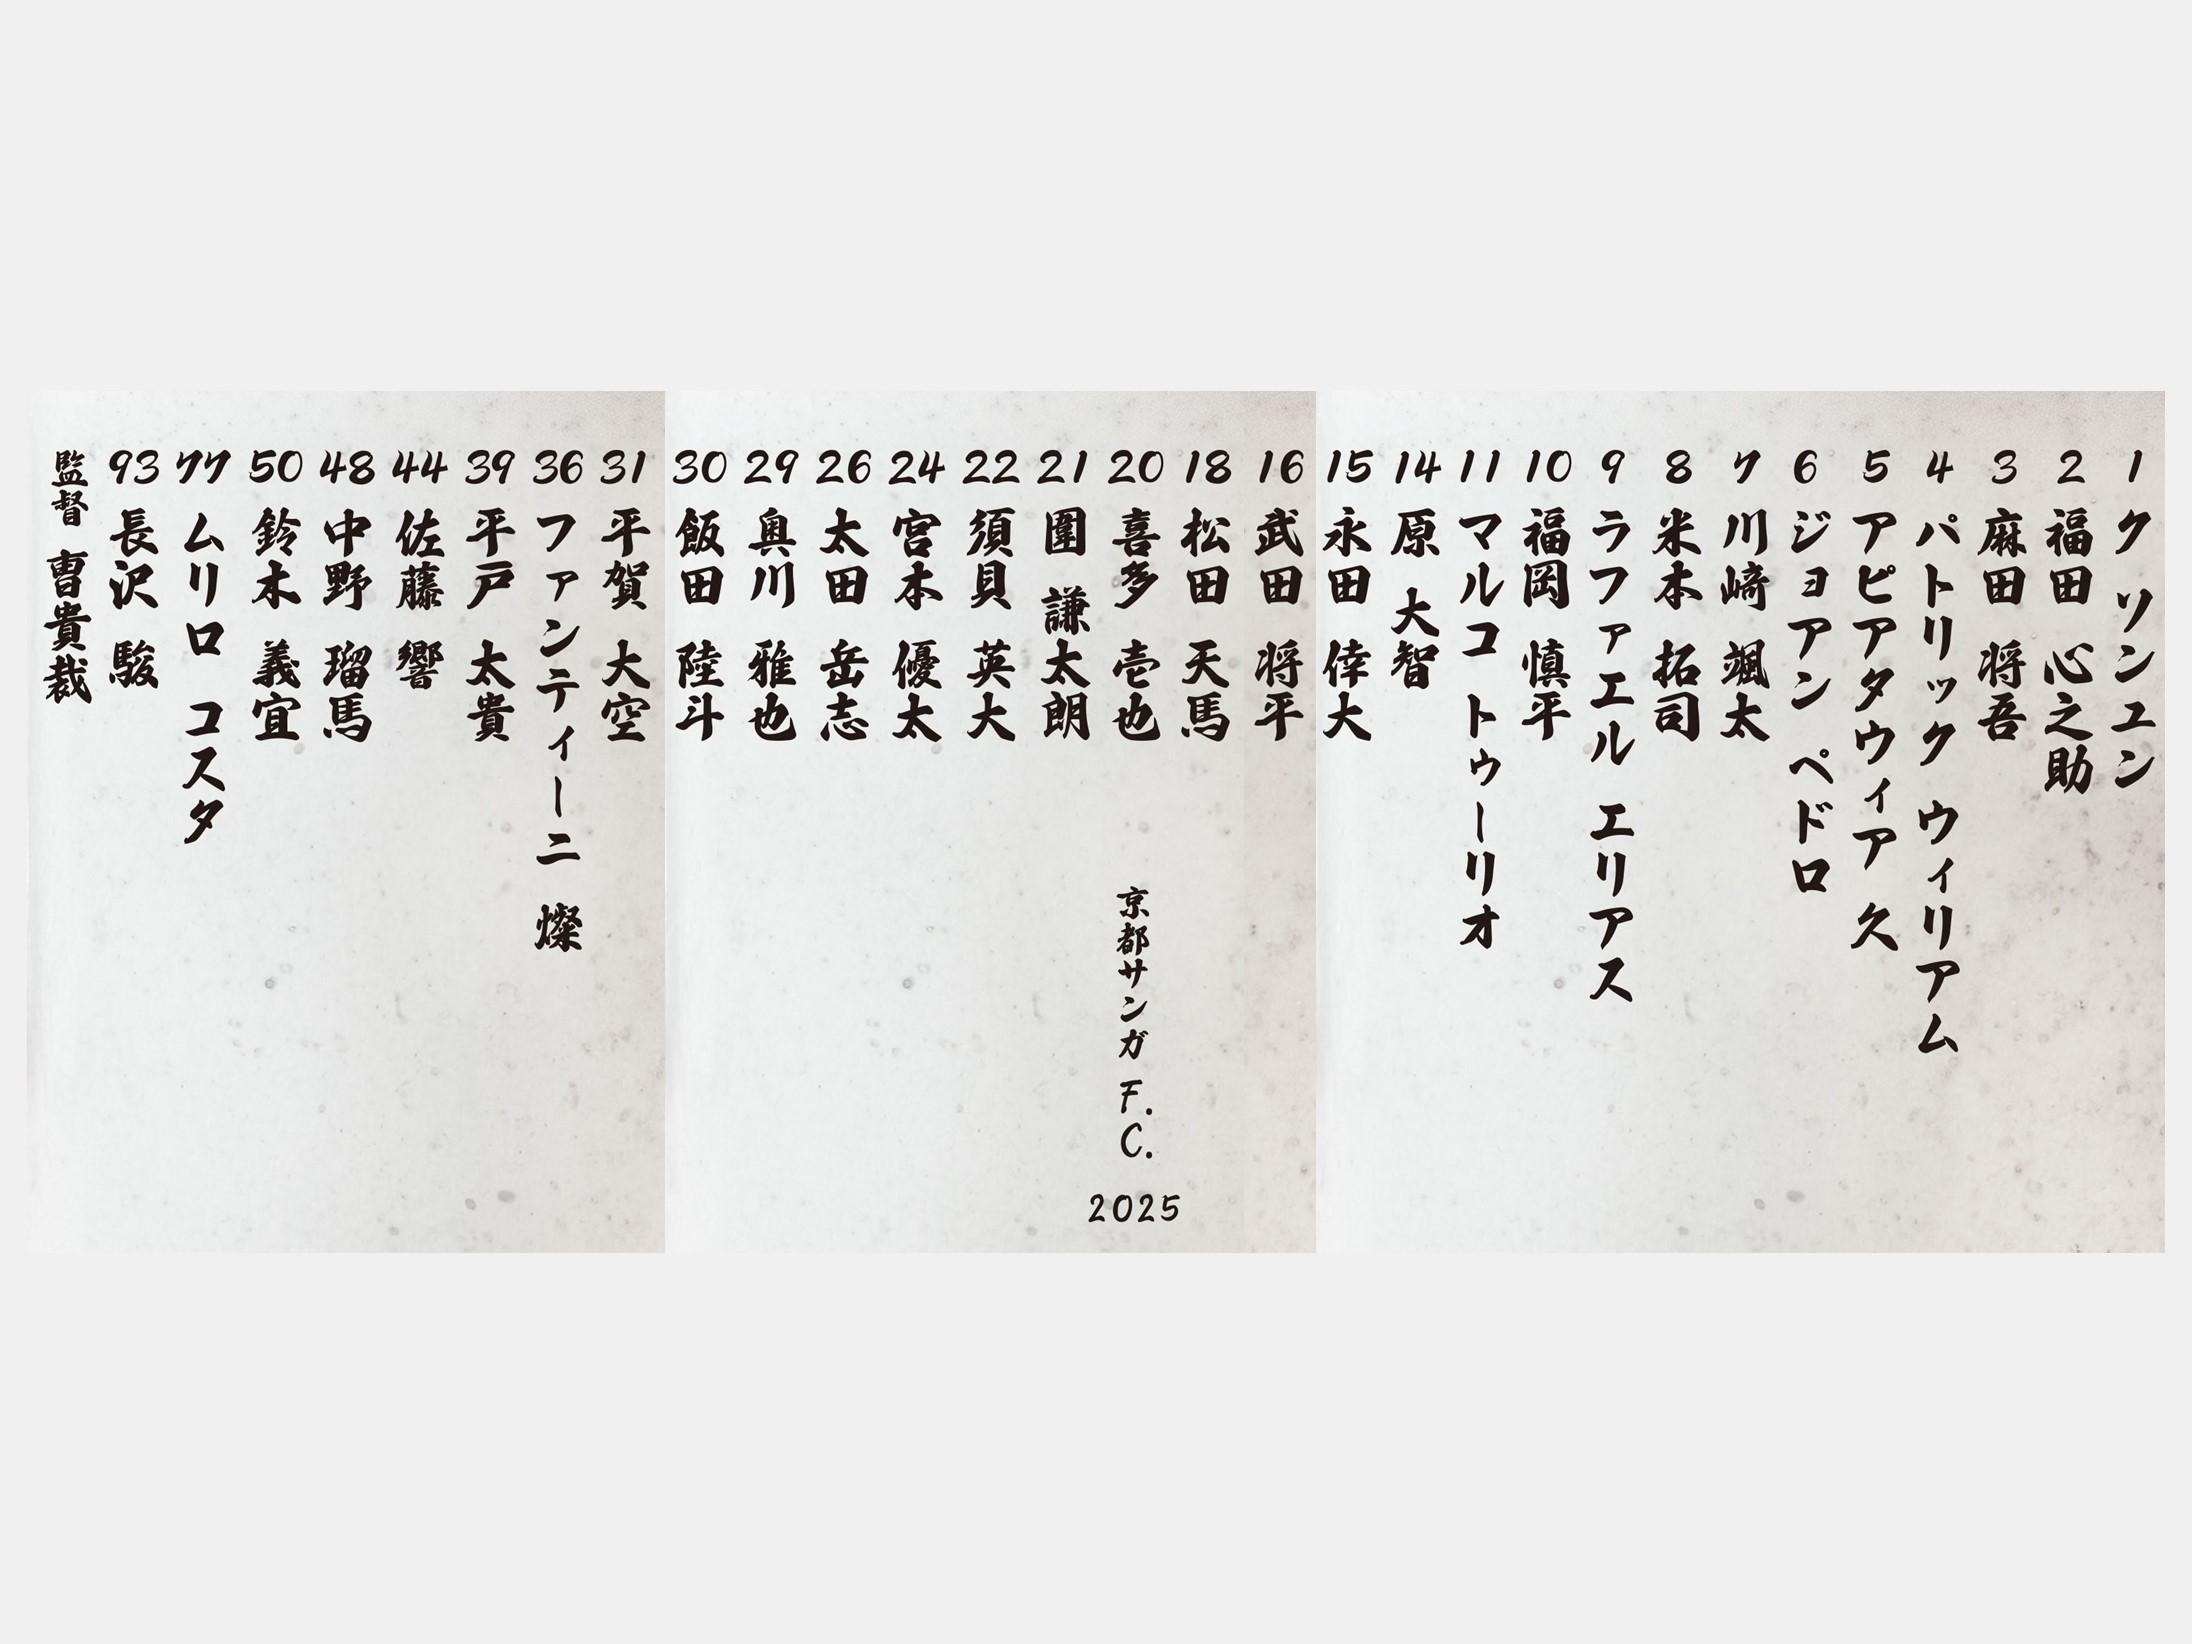 1 ク ソンユン
2 福田 心之助
3 麻田 将吾
4 パトリック ウィリアム
5 アピアタウィア 久
6 ジョアン ペドロ
7 川﨑 颯太
8 米本 拓司
9 ラファエル エリアス
10 福岡 慎平
11 マルコ トゥーリオ
14 原 大智
15 永田 倖大
16 武田 将平
18 松田 天馬
20 喜多 壱也
21 圍 謙太朗
22 須貝 英大
24 宮本 優太
26 太田 岳志
29 奥川 雅也
30 飯田 陸斗
31 平賀 大空
36 ファンティーニ 燦
39 平戸 太貴
44 佐藤 響
48 中野 瑠馬
50 鈴木 義宜
77 ムリロ コスタ
93 長沢 駿
監督 曺貴裁
京都サンガ F.C.
2025